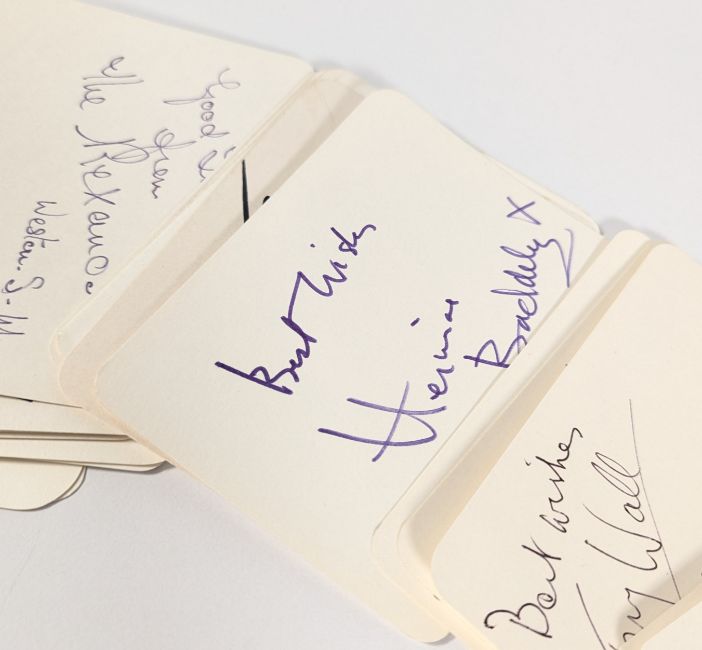 Good
from
The Rexano
Weston-S-M
Best Wishes
Hermione
Baddeley X
Best wishes
Wall